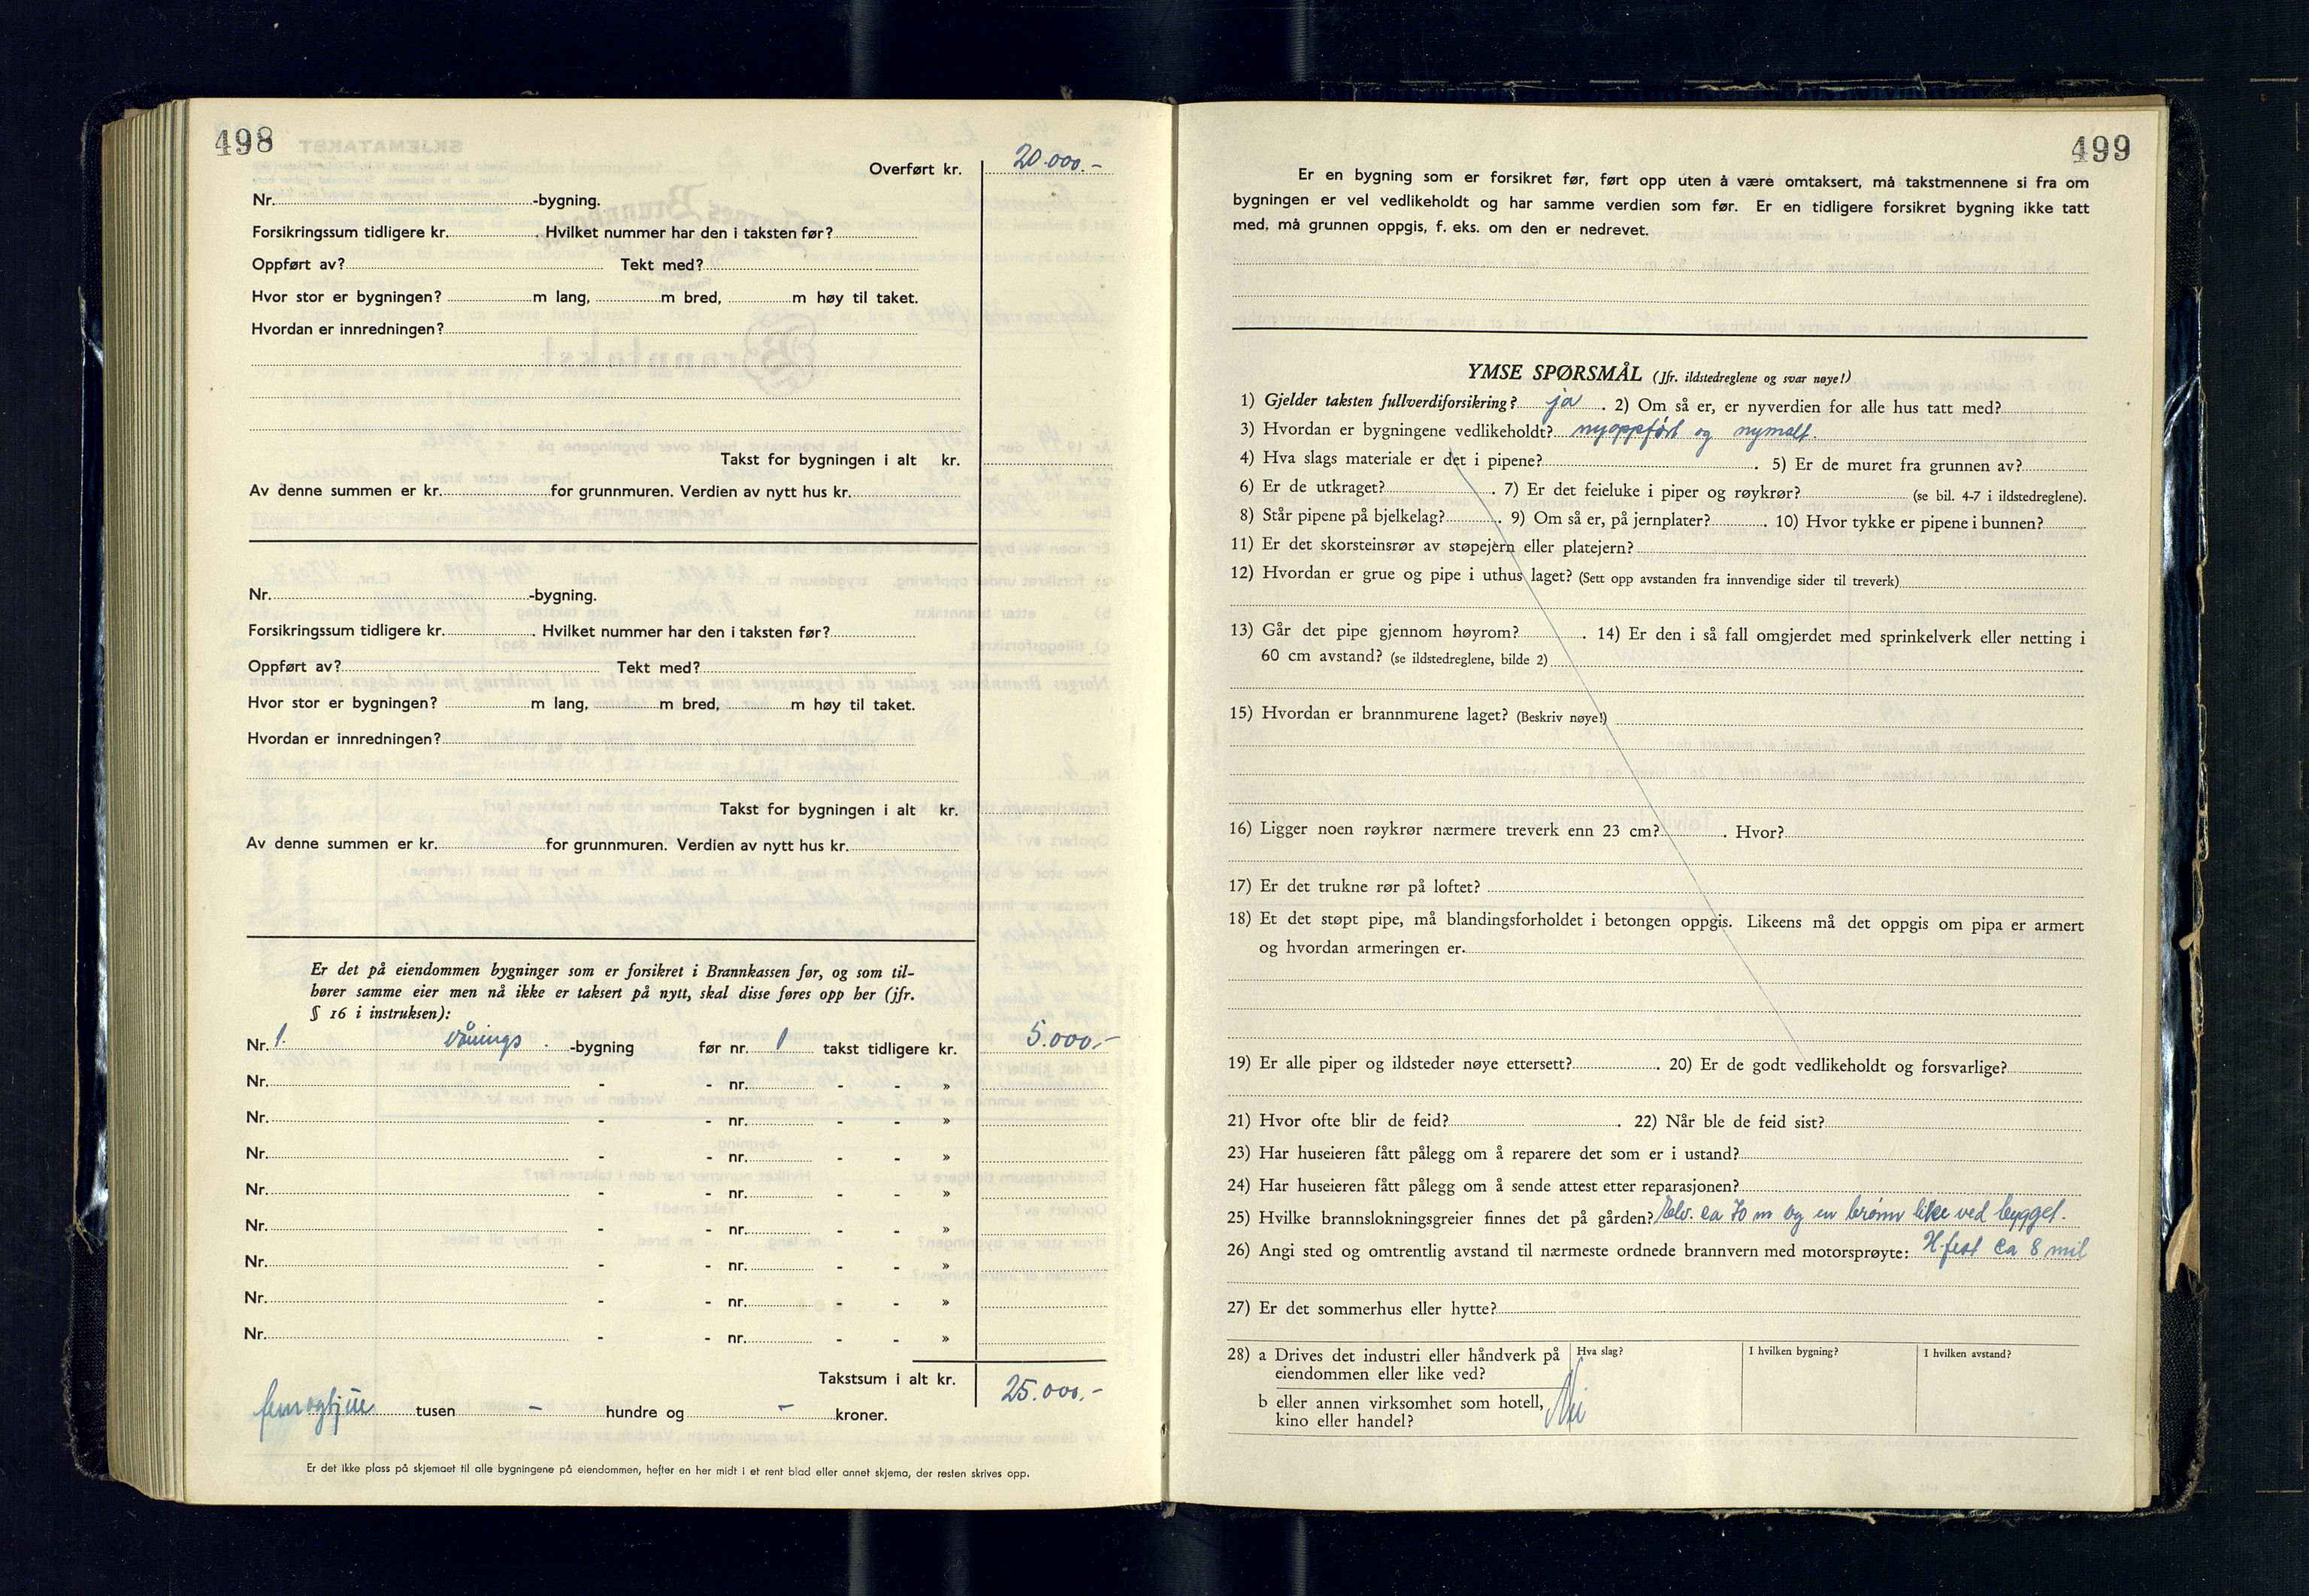 498
Overført kr. 20.000.-
Nr. -bygning.
Forsikringssum tidligere kr. . Hvilket nummer har den i taksten før?
Oppført av? Tekt med?
Hvor stor er bygningen? m lang, m bred, m høy til taket.
Hvordan er innredningen?
Takst for bygningen i alt kr.
Av denne summen er kr. for grunnmuren. Verdien av nytt hus kr.
Nr. -bygning.
Forsikringssum tidligere kr. . Hvilket nummer har den i taksten før?
Oppført av? Tekt med?
Hvor stor er bygningen? m lang, m bred, m høy til taket.
Hvordan er innredningen?
Takst for bygningen i alt kr.
Av denne summen er kr. for grunnmuren. Verdien av nytt hus kr.
Er det på eiendommen bygninger som er forsikret i Brannkassen før, og som til-
hører samme eier men nå ikke er taksert på nytt, skal disse føres opp her (jfr.
§ 16 i instruksen):
Nr. 1. Vånings -bygning før nr. 1 takst tidligere kr. 5.000.-
Nr. - - nr. - - »
Nr. - - nr. - - »
Nr. - - nr. - - »
Nr. - - nr. - - »
Nr. - - nr. - - »
Nr. - - nr. - - »
Nr. - - nr. - - »
Nr. - - nr. - - »
Takstsum i alt kr. 25.000.-
femogtjue tusen - hundre og - kroner.
Er det ikke plass på skjemaet til alle bygningene på eiendommen, hefter en her midt i et rent blad eller annet skjema, der resten skrives opp.
499
Er en bygning som er forsikret før, ført opp uten å være omtaksert, må takstmennene si fra om
bygningen er vel vedlikeholdt og har samme verdien som før. Er en tidligere forsikret bygning ikke tatt
med, må grunnen oppgis, f. eks. om den er nedrevet.
YMSE SPØRSMÅL (Jfr. ildstedreglene og svar nøye!)
1) Gjelder taksten fullverdiforsikring? ja . 2) Om så er, er nyverdien for alle hus tatt med?
3) Hvordan er bygningene vedlikeholdt? nyoppført og nymalt.
4) Hva slags materiale er det i pipene? . 5) Er de muret fra grunnen av?
6) Er de utkraget? . 7) Er det feieluke i piper og røykrør? (se bil. 4-7 i ildstedreglene).
8) Står pipene på bjelkelag? . 9) Om så er, på jernplater? . 10) Hvor tykke er pipene i bunnen?
11) Er det skorsteinsrør av støpejern eller platejern?
12) Hvordan er grue og pipe i uthus laget? (Sett opp avstanden fra innvendige sider til treverk)
13) Går det pipe gjennom høyrom? . 14) Er den i så fall omgjerdet med sprinkelverk eller netting i
60 cm avstand? (se ildstedreglene, bilde 2)
15) Hvordan er brannmurene laget? (Beskriv nøye!)
16) Ligger noen røykrør nærmere treverk enn 23 cm? . Hvor?
17) Er det trukne rør på loftet?
18) Et det støpt pipe, må blandingsforholdet i betongen oppgis. Likeens må det oppgis om pipa er armert
og hvordan armeringen er.
19) Er alle piper og ildsteder nøye ettersett? . 20) Er de godt vedlikeholdt og forsvarlige?
21) Hvor ofte blir de feid? . 22) Når ble de feid sist?
23) Har huseieren fått pålegg om å reparere det som er i ustand?
24) Har huseieren fått pålegg om å sende attest etter reparasjonen?
25) Hvilke brannslokningsgreier finnes det på gården? Elv. ca 70 m og en brønn like ved bygget.
26) Angi sted og omtrentlig avstand til nærmeste ordnede brannvern med motorsprøyte: H.fest ca 8 mil
27) Er det sommerhus eller hytte?
28) a Drives det industri eller håndverk på Hva slag? I hvilken bygning? I hvilken avstand?
eiendommen eller like ved?
b eller annen virksomhet som hotell, Nei
kino eller handel?